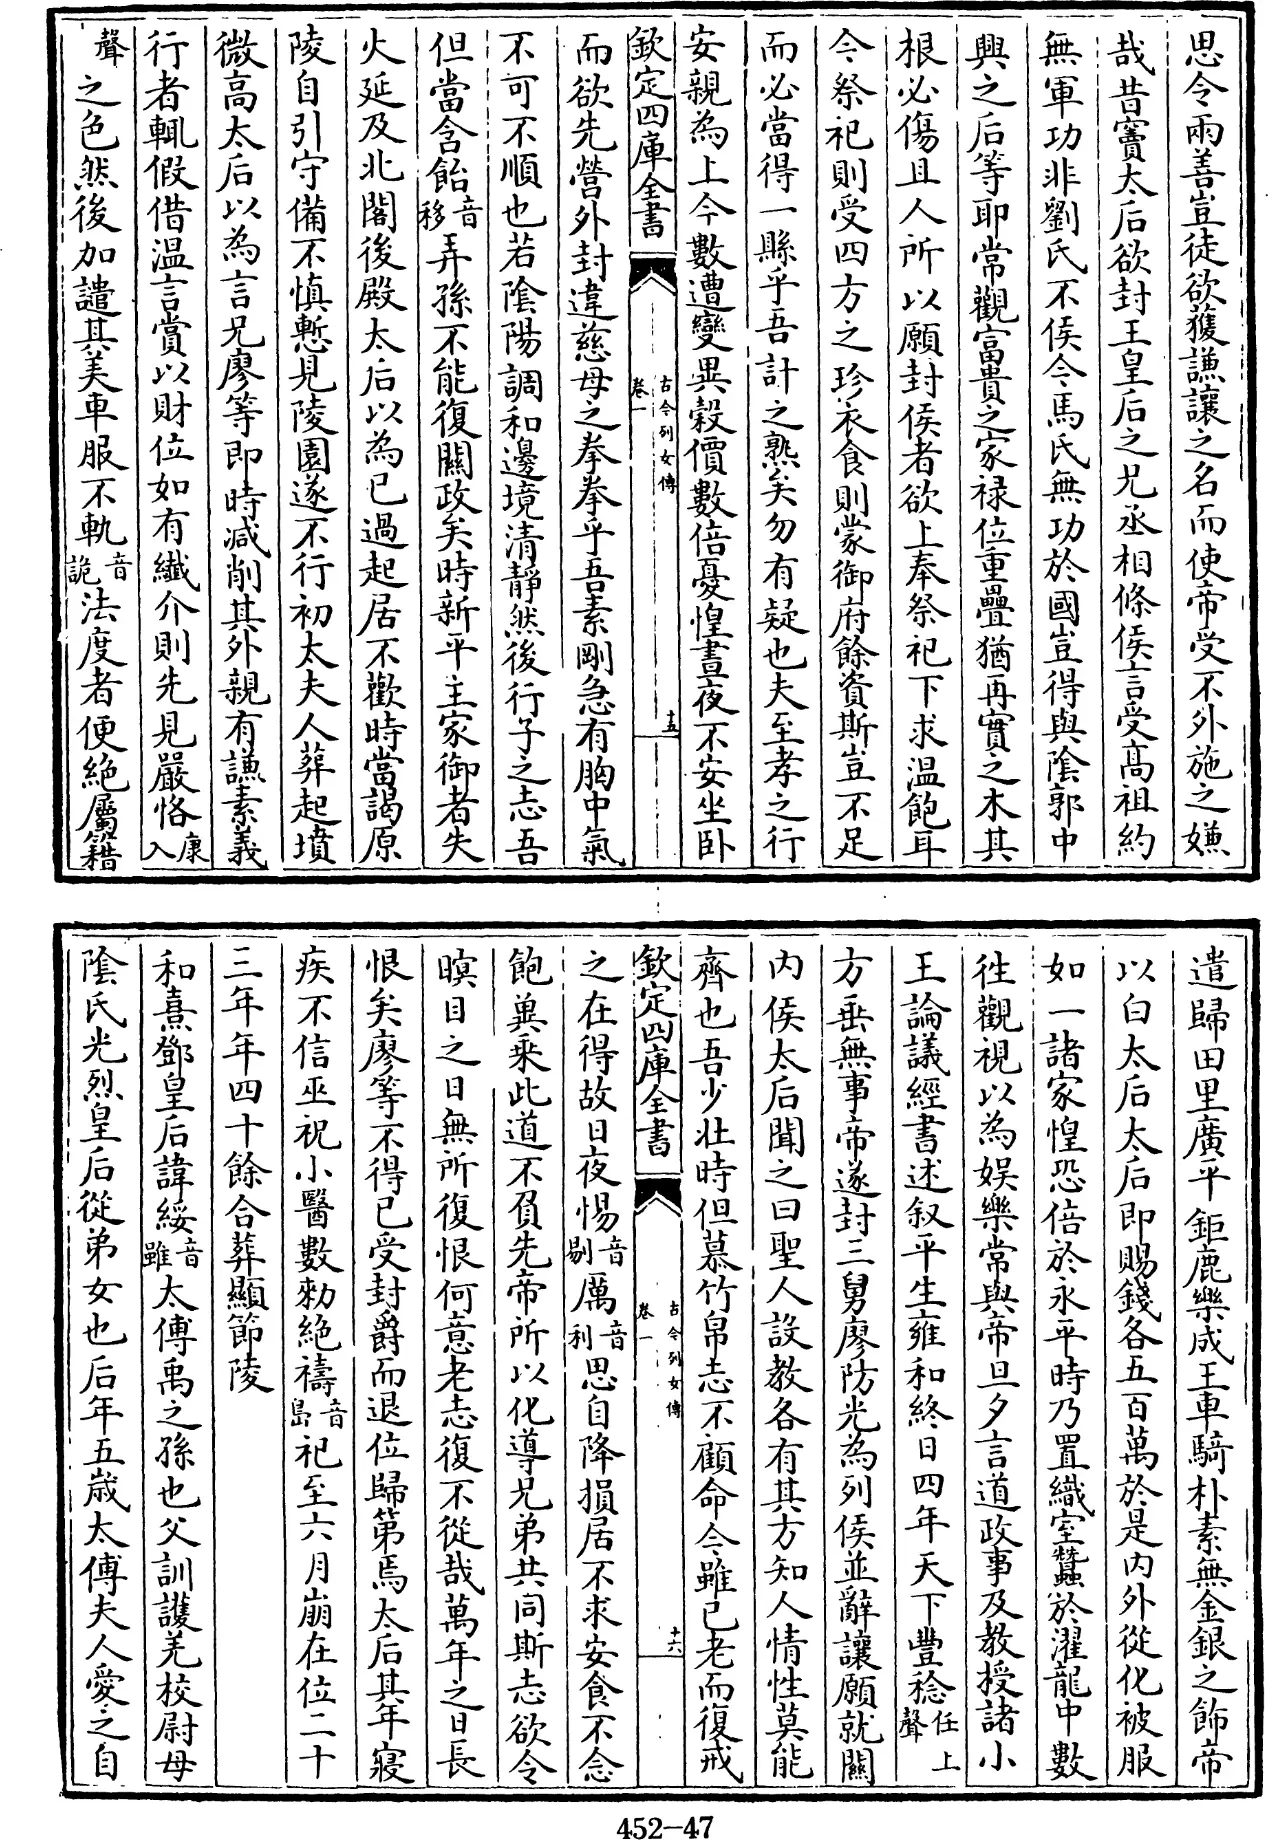 思令兩善豈徒欲獲謙讓之名而使帝受不外施之嫌
哉昔竇太后欲封王皇后之兄丞相條侯言受髙祖約
無軍功非劉氏不侯今馬氏無功於國豈得與隂郭中
興之后等耶常觀富貴之家禄位重疊猶再實之木其
根必傷且人所以願封侯者欲上奉祭祀下求溫飽耳
今祭祀則受四方之珍衣食則蒙御府餘資斯豈不足
而必當得一縣乎吾計之熟矣勿有疑也夫至孝之行
安親為上今數遭變異穀價數倍憂惶晝夜不安坐卧
欽定四庫全書 古今列女傳 卷一 十五
而欲先營外封違慈母之拳拳乎吾素剛急有胸中氣
不可不順也若隂陽調和邊境清靜然後行子之志吾
但當含飴音移弄孫不能復關政矣時新平主家御者失
火延及北閣後殿太后以為己過起居不歡時當謁原
陵自引守備不慎慙見陵園遂不行初太夫人葬起墳
微高太后以為言兄廖等即時減削其外親有謙素義
行者輒假借溫言賞以財位如有纎介則先見嚴恪康入
聲之色然後加譴其美車服不軌音詭法度者便絶屬籍
遣歸田里廣平鉅鹿樂成王車騎朴素無金銀之飾帝
以白太后太后即賜錢各五百萬於是内外從化被服
如一諸家惶恐倍於永平時乃置織室蠶於濯龍中數
往觀視以為娱樂常與帝旦夕言道政事及教授諸小
王論議經書述叙平生雍和終日四年天下豐稔任上聲
方垂無事帝遂封三舅廖防光為列侯並辭讓願就關
内侯太后聞之曰聖人設教各有其方知人情性莫能
齊也吾少壯時但慕竹帛志不顧命今雖已老而復戒
欽定四庫全書 古今列女傳 卷一 十六
之在得故日夜惕音剔厲音利思自降損居不求安食不念
飽冀乘此道不負先帝所以化導兄弟共同斯志欲令
瞑目之日無所復恨何意老志復不從哉萬年之日長
恨矣廖等不得已受封爵而退位歸第焉太后其年寢
疾不信巫祝小醫數勑絶禱音島祀至六月崩在位二十
三年年四十餘合葬顯節陵
和熹鄧皇后諱綏音雖太傅禹之孫也父訓護羌校尉母
隂氏光烈皇后從弟女也后年五歲太傅夫人愛之自
452-47